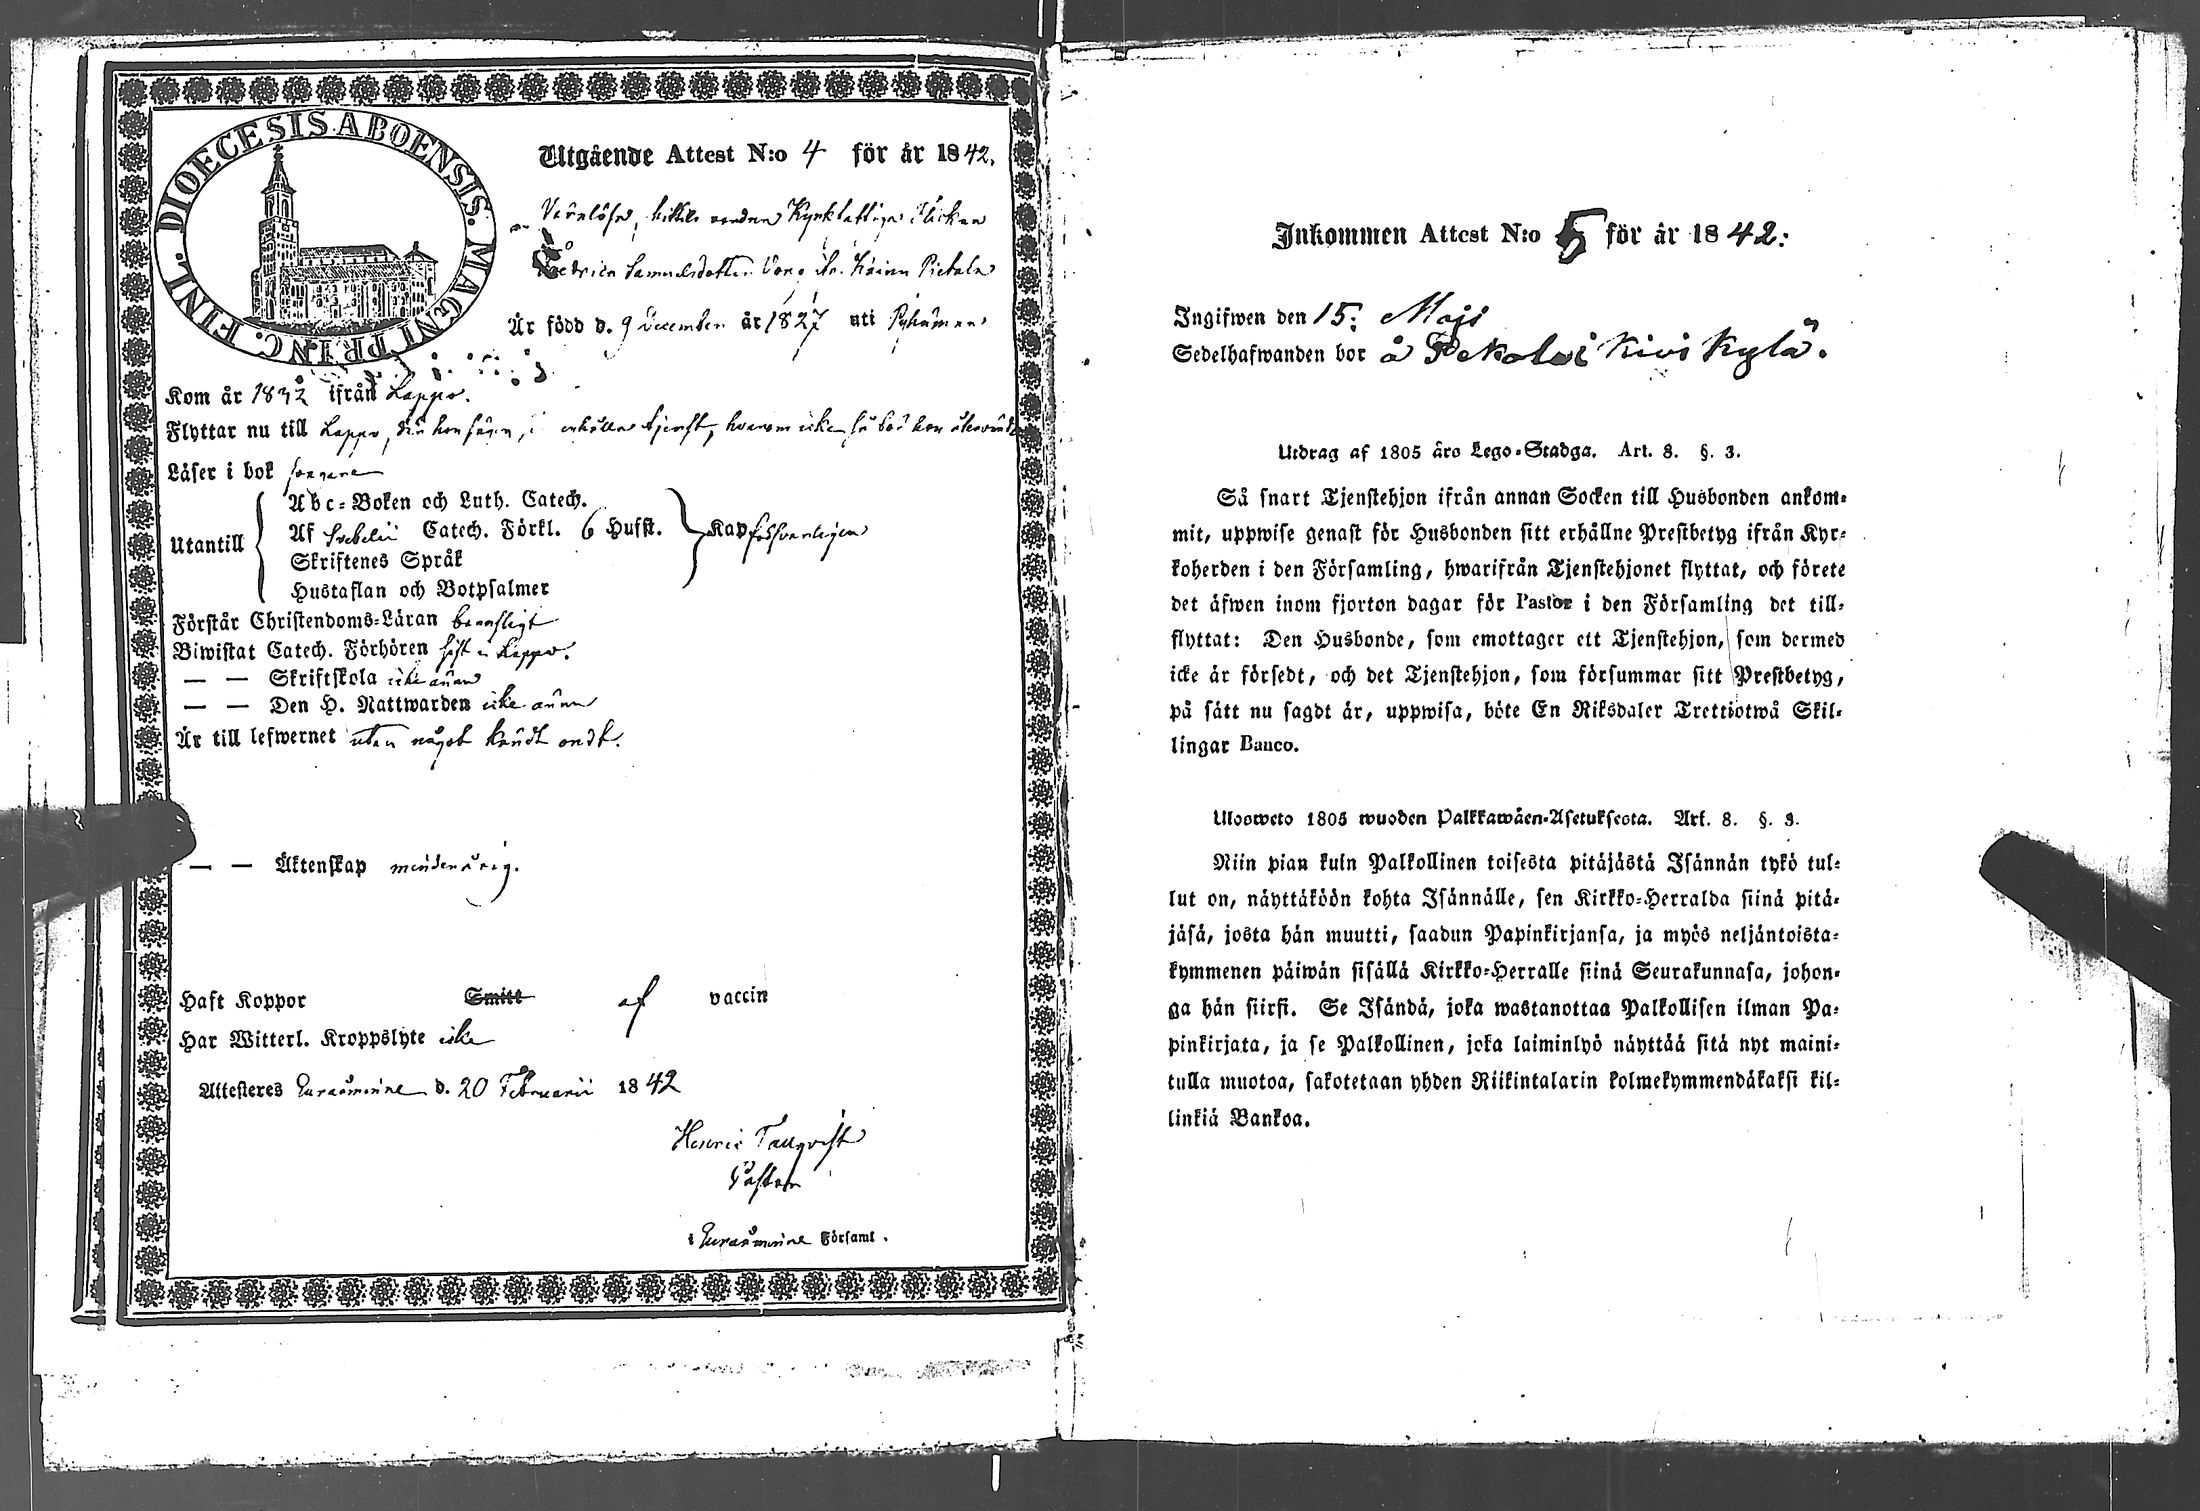 DIOECESIS ABOENSIS. MAGNI PRINC. FINL.
Utgående Attest N:o 4 för år 1842.
Värnlösa, hittils varden Kyrkfattiga Flickan
Samuelsdotter
Är född d. 9 December år 1827 uti Pyhämaa
Kom år 1832 ifrån Lappo.
Flyttar nu till Lappo, där hon säges erhålla tjenst, hvarom icke så bör hon återvända
Läser i bok
Utantill
Abc-Boken och Luth. Catech.
Af Svebelii Catech. Förkl. 6 Hufst.
Skriftenes Språk
Hustaflan och Botpsalmer
Kap försvarligen
Förstår Christendoms-Läran
Biwistat Catech. Förhören sist i Lappo.
— — Skriftskola icke ännu
— — Den H. Nattwarden icke ännu
Är till lefwernet utan något kändt ondt.
— — Äktenskap minderårig.
Haft Koppor Smitt af vaccin
Har Witterl. Kroppslyte icke
Attesteres Euraåminne d. 20 Februarii 1842
Henric Tallqvist
Pastor
i Euraåminne Församl.
Inkommen Attest N:o 5 för år 1842:
Ingifwen den 15: Maji
Sedelhafwanden bor å Pekola i Kivi Kylä.
Utdrag af 1805 års Lego-Stadga. Art. 8. §. 3.
Så snart Tjenstehjon ifrån annan Socken till Husbonden ankom-
mit, uppwise genast för Husbonden sitt erhållne Prestbetyg ifrån Kyr-
koherden i den Församling, hwarifrån Tjenstehjonet flyttat, och förete
det äfwen inom fjorton dagar för Pastor i den Församling det till-
flyttat: Den Husbonde, som emottager ett Tjenstehjon, som dermed
icke är försedt, och det Tjenstehjon, som försummar sitt Prestbetyg,
på sätt nu sagdt är, uppwisa, böte En Riksdaler Trettiotwå Skil-
lingar Banco.
Ulosweto 1805 wuoden Palkkawäen-Asetuksesta. Art. 8. §. 3.
Niin pian kuin Palkollinen toisesta pitäjästä Isännän tykö tul-
lut on, näyttäköön kohta Isännälle, sen Kirkko-Herralda siinä pitä-
jäsä, josta hän muutti, saadun Papinkirjansa, ja myös neljäntoista-
kymmenen päiwän sisällä Kirkko-Herralle siinä Seurakunnasa, johon-
ga hän siirsi. Se Isändä, joka wastanottaa Palkollisen ilman Pa-
pinkirjata, ja se Palkollinen, joka laiminlyö näyttää sitä nyt maini-
tulla muotoa, sakotetaan yhden Riikintalarin kolmekymmendäkaksi kil-
linkiä Bankoa.